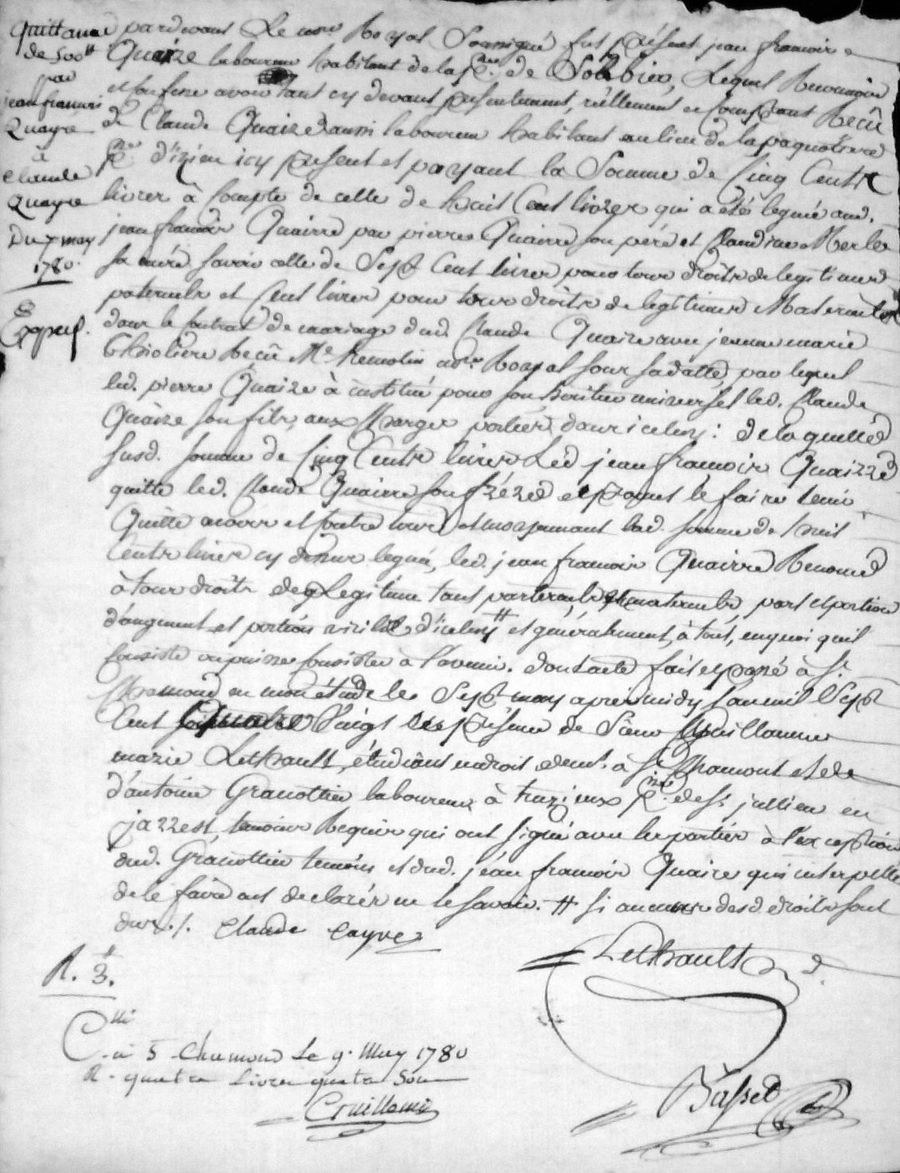 Quittance
de 500tt
par
jean francois
Quayre
à
Claude
Quayre
Du 7 may
1780.
Exped.
pardevant Le nore Royal Soussigné fut présent jean francois
Quaire laboureur habitant de la psse de Solebieu, Lequel
et confesse avoir tant cy devant que présentement, réellement et comptant Reçû
de Claude Quaire aussi laboureur habitant au lieu de la paquetiere
psse d'izieu icy présent et payant la Somme de Cinq Cents
livres à Compte de celle de huit Cent livres qui a été leguée aud.
jean francois Quairre par pierre Quairre son péré et Claudine Merle
sa mére savoir celle de Sept Cent livres pour tous droits de legitimes
paternels et Cent livres pour tous droits de legitimes Maternels
dans le Contrat de mariage dud. Claude Quaire avec jeanne marie
Thiolière Reçû Me Remolin nore Royal sous sa datte, par lequel
led. pierre Quaire à institué pour son héritier universel led. Claude
Quaire son fils, aux Charges portées dans iceluy : de laquelle
susd. somme de Cinq Cents livres Led jean francois Quaizre
quitte led. Claude Quairre son frére et promet le faire tenir
Quitte envers et contre tous, et moyennant lad. somme de huit
Cents livres cy dessus legué, led. jean francois Quairre Renonce
à tous droits de Legitime tant paternels que maternels, part et portion
d'augment et portion virille d'iceluy tt et généralement, à tout, en quoi qu'il
Consiste ou puisse consister à l'avenir. dont acte fait et passé à St
Chamond en mon étude le Sept may après midy l'an mil Sept
Cent quatre Vingt en présence de Sieur Guillaume
marie Lethault, étudiant en droit demt. à St Chamont et de
d'antoine Granottier laboureur à trezieux psse de St jullien en
jazzest, temoins Requis qui ont signé avec les parties à l'exception
dud. Granottier temoin et dud. jean francois Quaire qui interpellé
de le faire ont declaré ne le savoir. tt si aucuns desd. droits sont
dus ./. Claude Cayre
Lethault
R. 3.
C.
à S Chamond Le 9. May 1780
R. quatre Livres quatre Sou
Basset